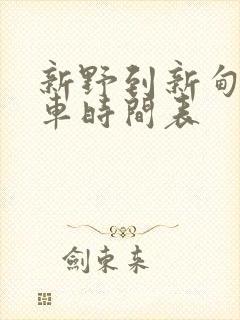 新野到新甸
車時間表
劍束来